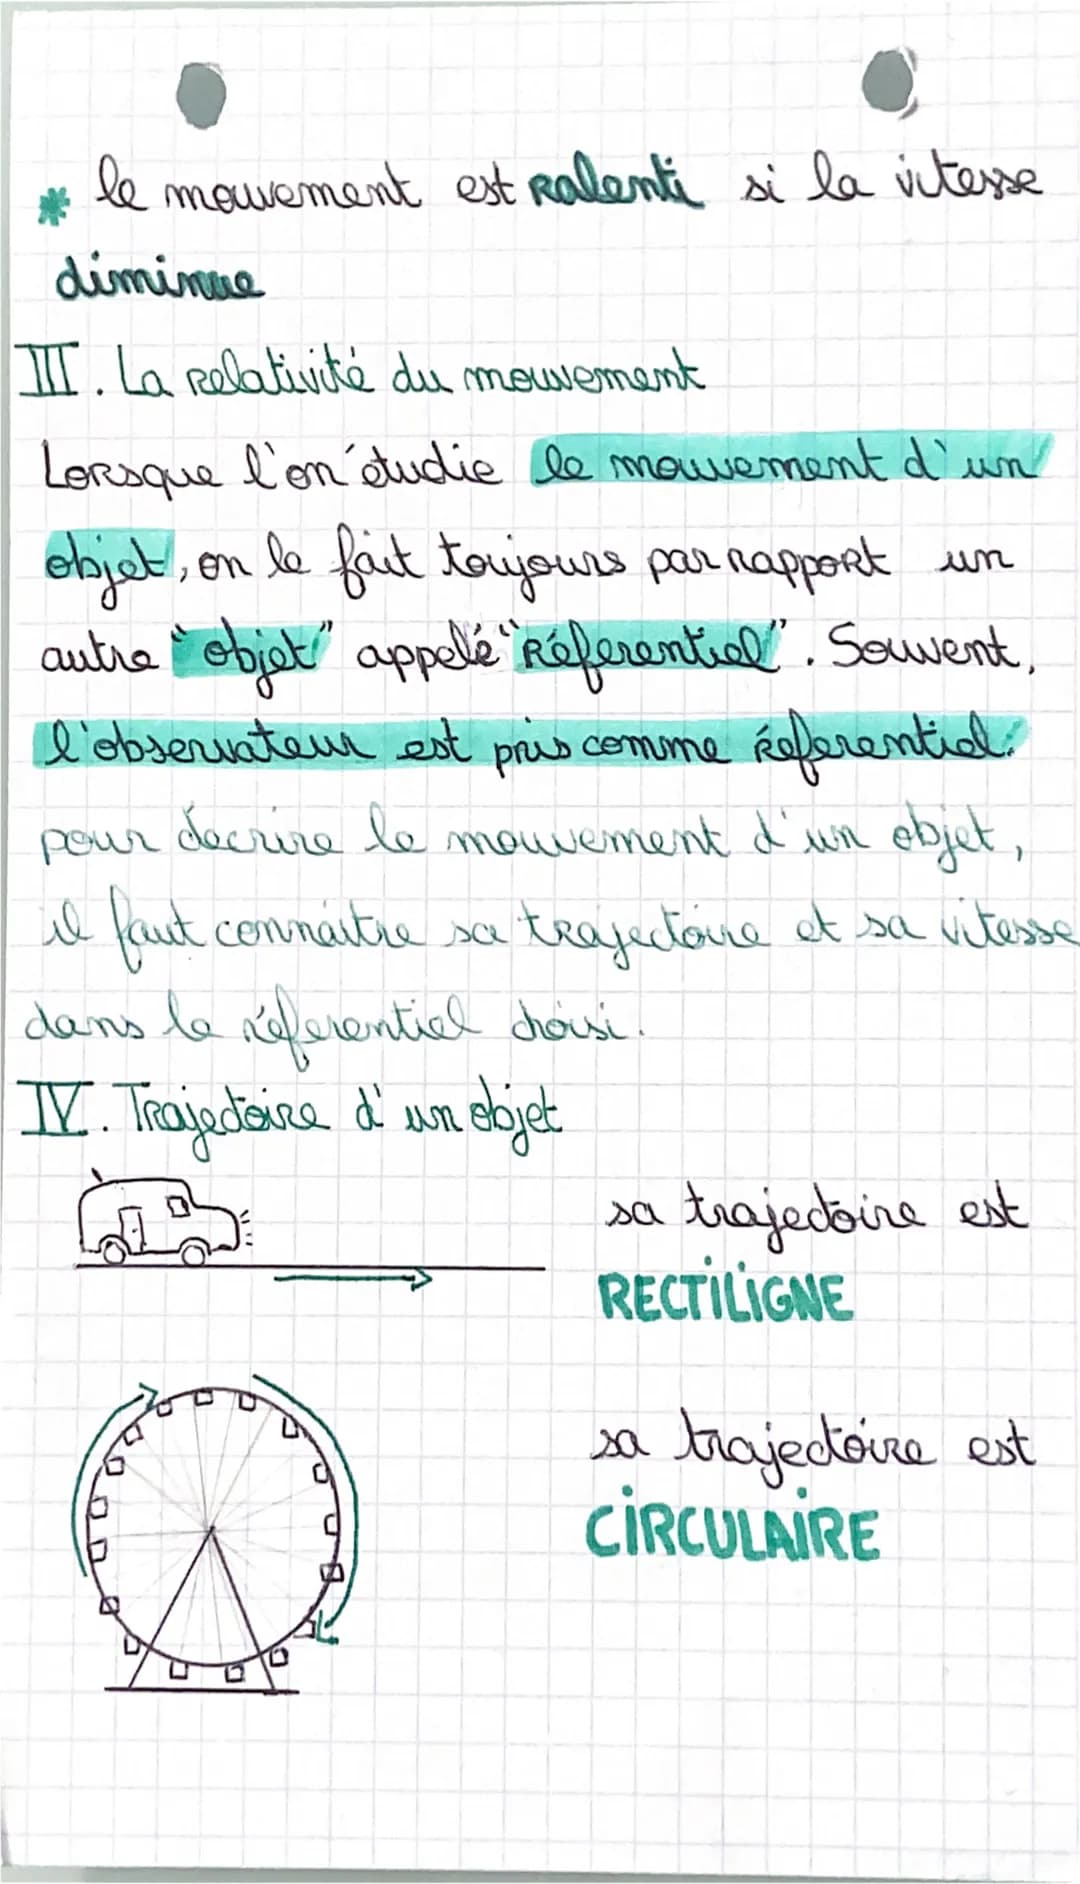 * le mouvement est Ralenti si la vitesse
diminue
III. La relativité du mouvement
Lorsque l'on étudie le mouvement d'un
objet, on le fait toujours par rapport un
autre "objet" appelé "Référentiel". Souvent,
l'observateur est pris comme référentiel.
pour décrire le mouvement d'un objet,
il faut connaitre sa trajectoire et sa vitesse
dans le référentiel choisi.
IV. Trajectoire d'un objet
sa trajectoire est
RECTILIGNE
sa trajectoire est
CIRCULAIRE